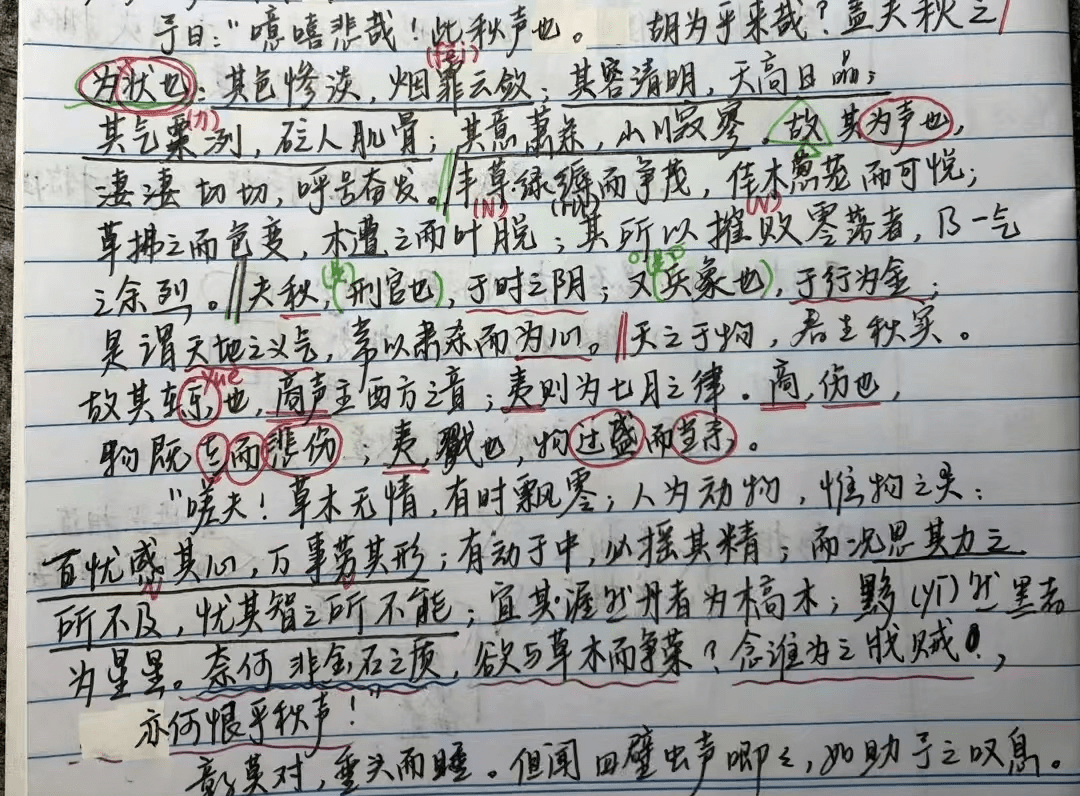 予曰：“噫嘻悲哉！此秋声也。 胡为乎来哉？盖夫秋之
(fēi)
为状也：其色惨淡，烟霏云敛；其容清明，天高日晶；
其气栗(lì)冽，砭人肌骨；其意萧条，山川寂寥。故其为声也，
凄凄切切，呼号奋发。//丰草绿缛而争茂，佳木葱茏而可悦；
(N) (rù) (N)
草拂之而色变，木遭之而叶脱；其所以摧败零落者，乃一气
之余烈。//夫秋，(刑官也)，于时之阴；又(兵象也)，于行为金；
是谓天地之义气，常以肃杀而为心。//天之于物，春生秋实。
yuè
故其在乐也，商声主西方之音；夷则为七月之律。商，伤也，
物既老而悲伤；夷，戮也，物过盛而当杀。
“嗟夫！草木无情，有时飘零；人为动物，惟物之灵；
百忧感其心，万事劳其形；有动于中，必摇其精；而况思其力之
所不及，忧其智之所不能；宜其渥然丹者为槁木；黟(yī)然黑者
为星星。奈何非金石之质，欲与草木而争荣？念谁为之戕贼，
亦何恨乎秋声！”
童子莫对，垂头而睡。但闻四壁虫声唧々，如助予之叹息。